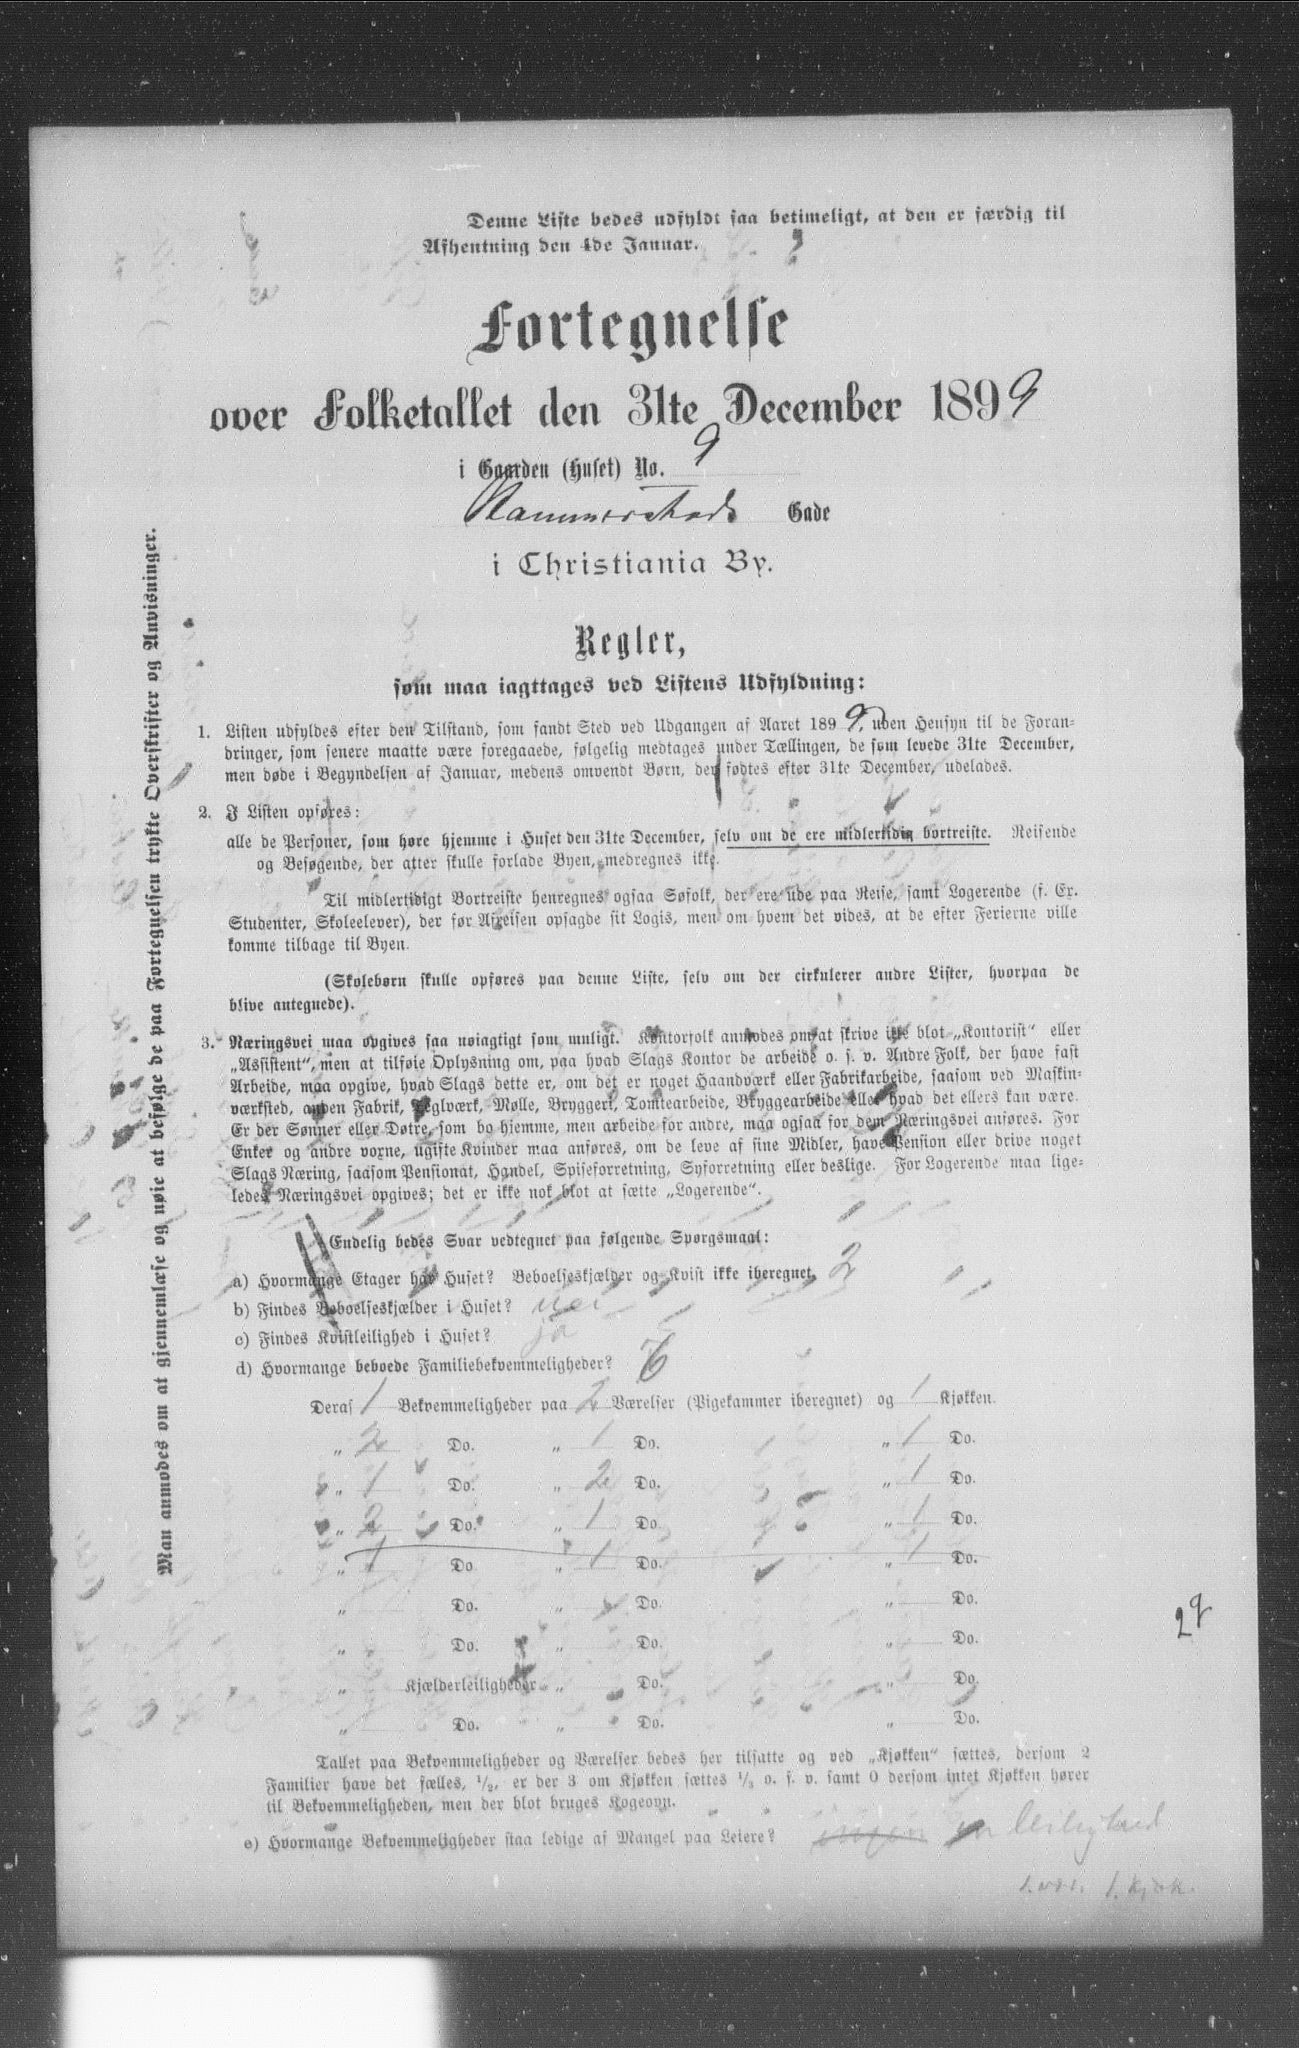 Denne Liste bedes udfyldt saa betimeligt, at den er færdig til
Afhentning den 4de Januar.
Fortegnelse
over Folketallet den 31te December 1899
i Gaarden (Huset) No. 9
Gade
i Christiania By.
Regler,
som maa iagttages ved Listens Udfyldning:
1. Listen udfyldes efter den Tilstand, som fandt Sted ved Udgangen af Aaret 1899, uden Hensyn til de Foran-
dringer, som senere maatte være foregaaede, følgelig medtages under Tællingen, de som levede 31te December,
men døde i Begyndelsen af Januar, medens omvendt Børn, der fødtes efter 31te December, udelades.
2. I Listen opføres:
alle de Personer, som høre hjemme i Huset den 31te December, selv om de ere midlertidig bortreiste. Reisende
og Besøgende, der atter skulle forlade Byen, medregnes ikke.
Til midlertidigt Bortreiste henregnes ogsaa Søfolk, der ere ude paa Reise, samt Logerende (f. Ex.
Studenter, Skoleelever), der før Afreisen opsagde sit Logis, men om hvem det vides, at de efter Ferierne ville
komme tilbage til Byen.
(Skolebørn skulle opføres paa denne Liste, selv om der cirkulerer andre Lister, hvorpaa de
blive antegnede).
3. Næringsvei maa opgives saa nøiagtigt som muligt. Kontorfolk anmodes om at skrive ikke blot „Kontorist“ eller
„Assistent“, men at tilføie Oplysning om, paa hvad Slags Kontor de arbeide o. s. v. Andre Folk, der have fast
Arbeide, maa opgive, hvad Slags dette er, om det er noget Haandværk eller Fabrikarbeide, saasom ved Maskin-
værksted, anden Fabrik, Teglværk, Mølle, Bryggeri, Tomtearbeide, Bryggearbeide eller hvad det ellers kan være.
Er der Sønner eller Døtre, som bo hjemme, men arbeide for andre, maa ogsaa for dem Næringsvei anføres. For
Enker og andre voxne, ugifte Kvinder maa anføres, om de leve af sine Midler, have Pension eller drive noget
Slags Næring, saasom Pensionat, Handel, Spiseforretning, Syforretning eller deslige. For Logerende maa lige-
ledes Næringsvei opgives; det er ikke nok blot at sætte „Logerende“.
Endelig bedes Svar vedtegnet paa følgende Spørgsmaal:
a) Hvormange Etager har Huset? Beboelseskjælder og Kvist ikke iberegnet. 2
b) Findes Beboelseskjælder i Huset? nei
c) Findes Kvistleilighed i Huset? ja
d) Hvormange beboede Familiebekvemmeligheder? 6
Deraf 1 Bekvemmeligheder paa 2 Værelser (Pigekammer iberegnet) og 1 Kjøkken.
„ 2 Do. „ 1 Do. „ 1 Do.
„ 1 Do. „ 2 Do. „ 1 Do.
„ 2 Do. „ 1 Do. „ 1 Do.
„ 1 Do. „ 1 Do. „ 1 Do.
„ Do. „ Do. „ Do.
„ Do. „ Do. „ Do.
„ Kjælderleiligheder „ Do. „ Do.
„ Do. „ Do. „ Do.
Tallet paa Bekvemmeligheder og Værelser bedes her tilsatte og ved „Kjøkken“ sættes, dersom 2
Familier have det fælles, 1/2, er der 3 om Kjøkken sættes 1/3 o. s. v. samt 0 dersom intet Kjøkken hører
til Bekvemmeligheden, men der blot bruges Kogeovn.
e) Hvormange Bekvemmeligheder staa ledige af Mangel paa Leiere? ingen en leilighed
1 vær. 1 kjøk.
Man anmodes om at gjennemlæse og nøie at befølge de paa Fortegnelsen trykte Overskrifter og Anvisninger.